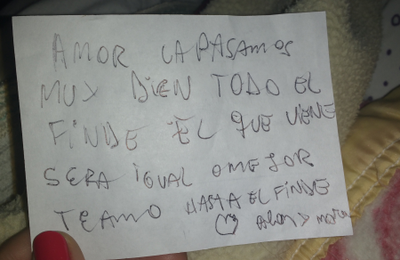 AMOR LA PASAMOS
MUY BIEN TODO EL
FINDE EL QUE VIENE
SERA IGUAL O MEJOR
TE AMO HASTA EL FINDE